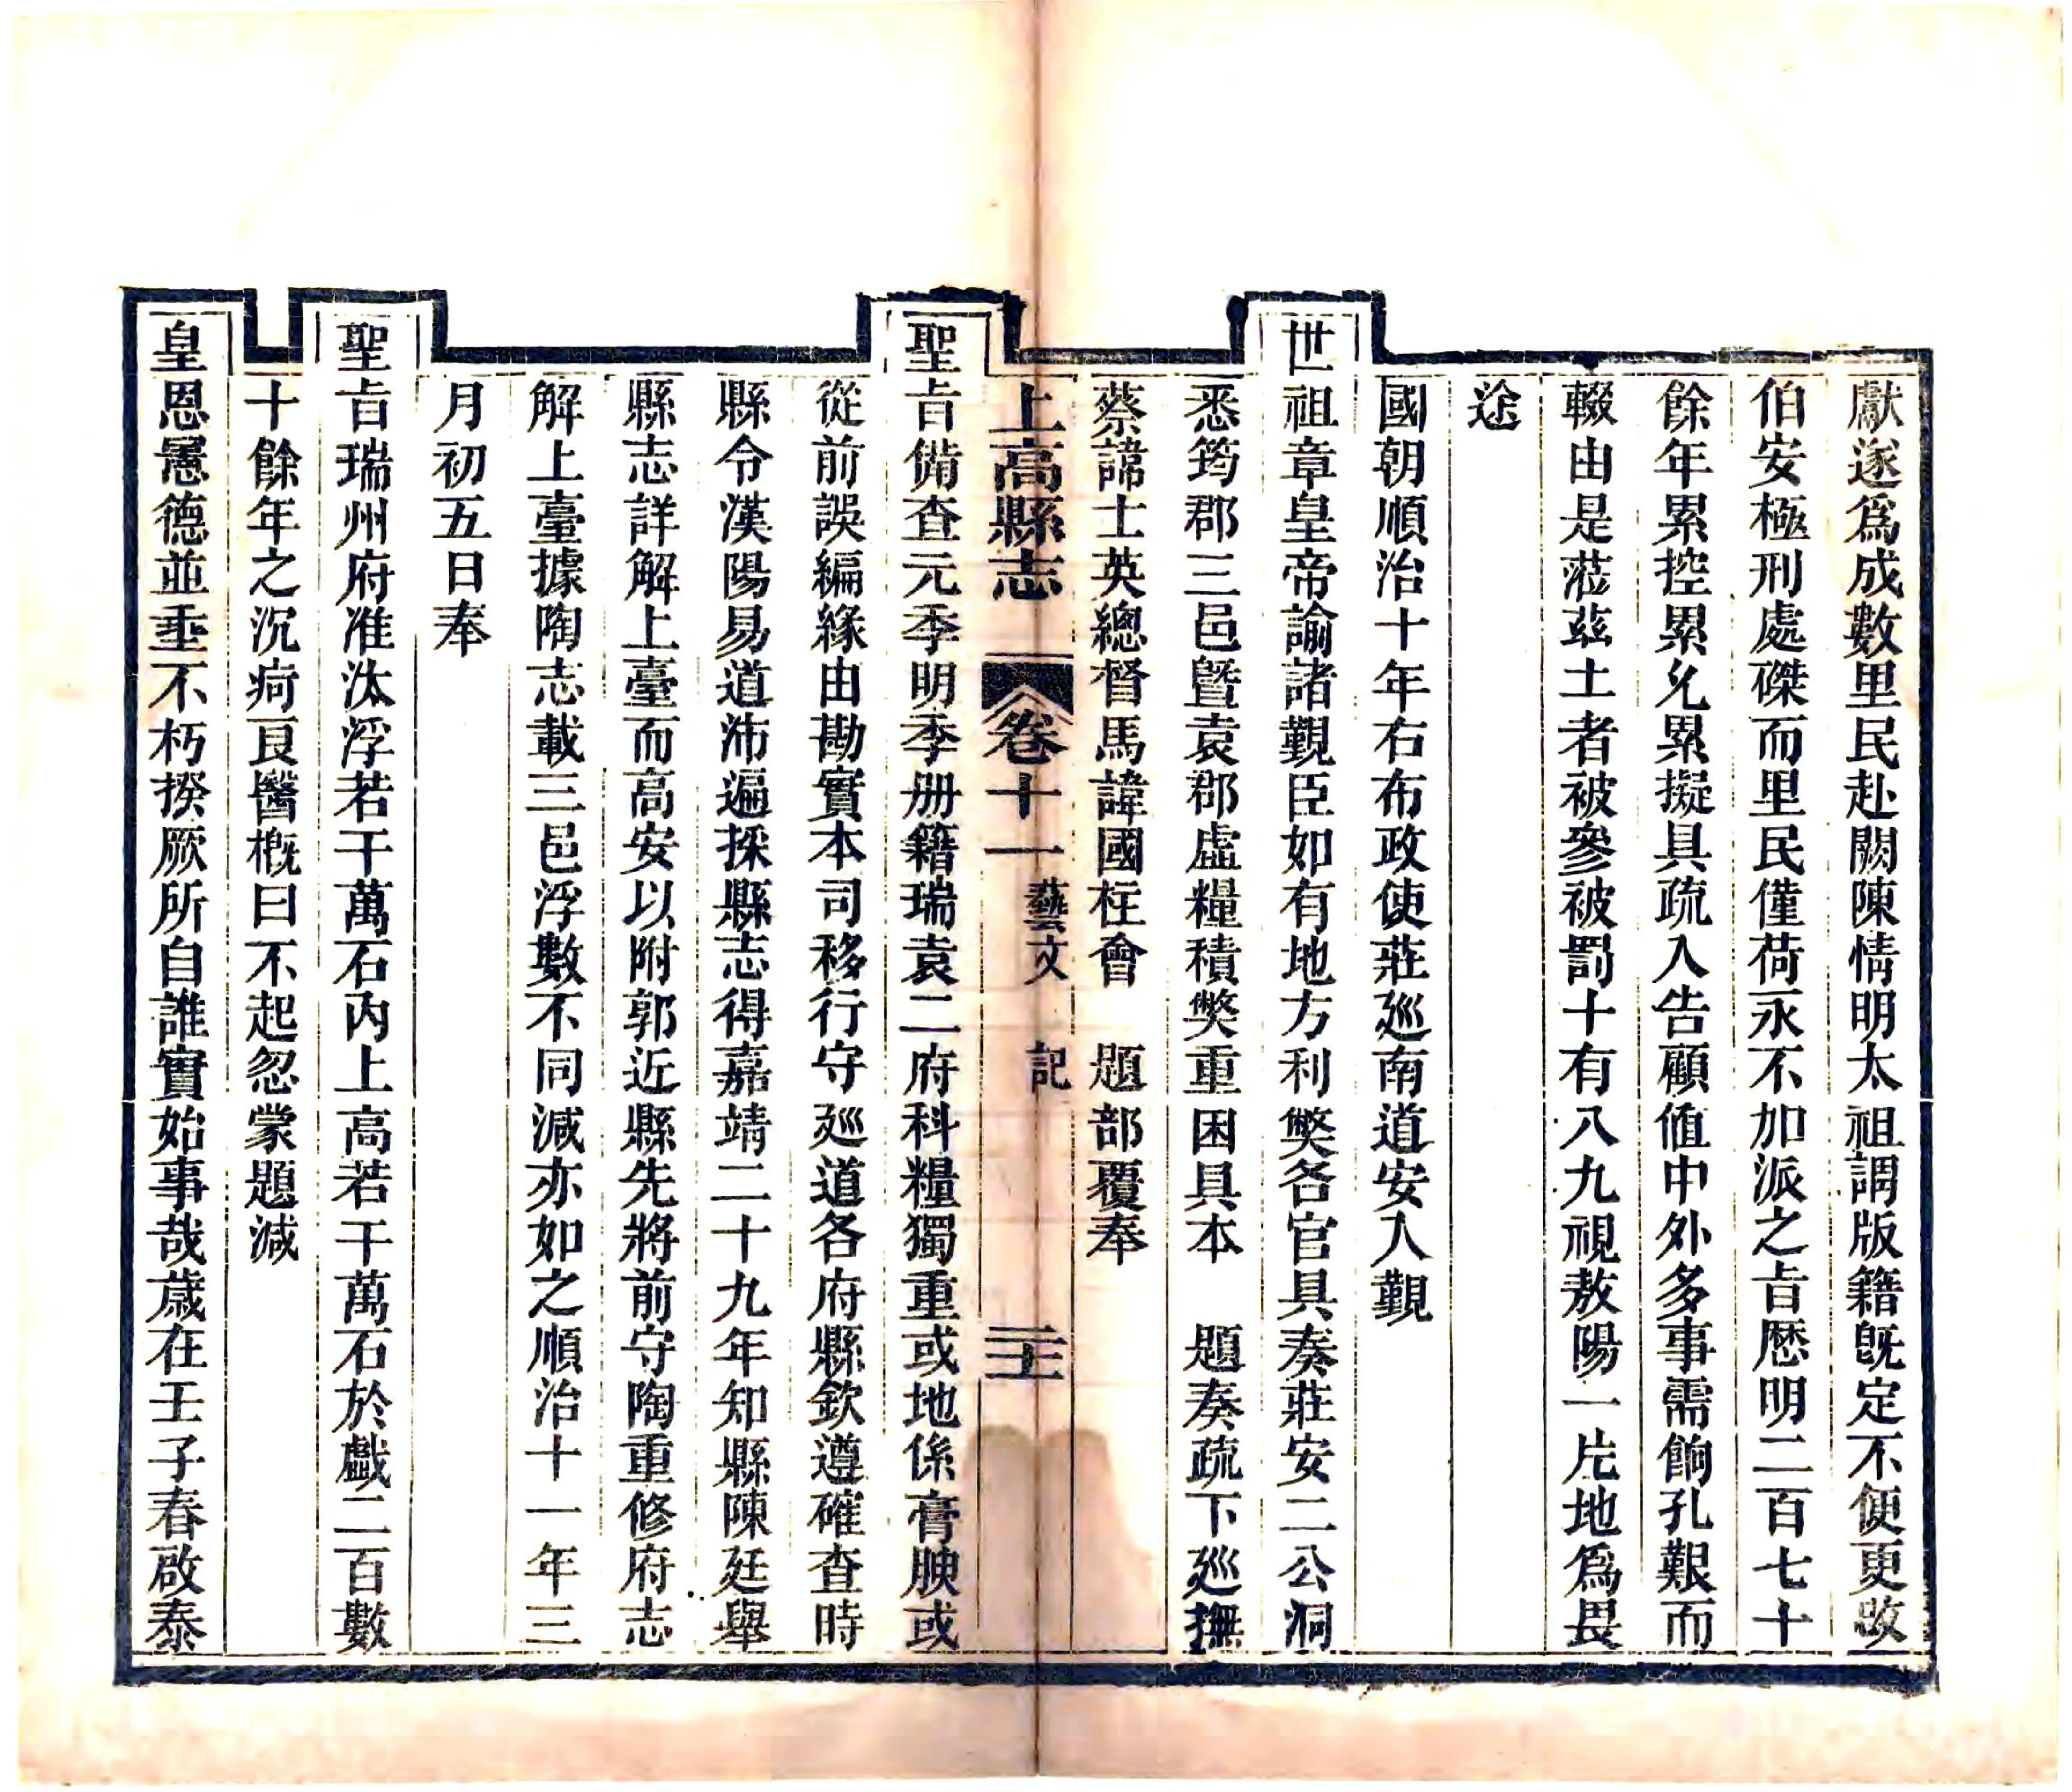 獻遂爲成數里民赴闕陳情明太祖謂版籍旣定不便更改
伯安極刑處磔而里民僅荷永不加派之旨歴明二百七十
餘年累控累允累擬具疏入告顧值中外多事需餉孔艱而
輟由是蒞茲土者被參被罰十有八九視敖陽一片地爲畏
途
國朝順治十年右布政使莊廵南道安人覲
世祖章皇帝諭諸覲臣如有地方利獘各官具奏莊安二公洞
悉筠郡三邑曁袁郡虛糧積獘重困具本　題奏疏下廵撫
蔡諱士英總督馬諱國柱會　題部覆奉
上高縣志　卷十一　藝文　記　二十一
聖旨備查元季明季册籍瑞袁二府科糧獨重或地係膏腴或
從前誤編緣由勘實本司移行守廵道各府縣欽遵確查時
縣令漢陽易道沛遍採縣志得嘉靖二十九年知縣陳廷舉
縣志詳解上臺而高安以附郭近縣先將前守陶重修府志
解上臺據陶志載三邑浮數不同減亦如之順治十一年三
月初五日奉
聖旨瑞州府准汰浮若干萬石內上高若干萬石於戲二百數
十餘年之沉疴良醫槪曰不起忽蒙題減
皇恩憲德並垂不朽揆厥所自誰實始事哉歲在壬子春啟泰